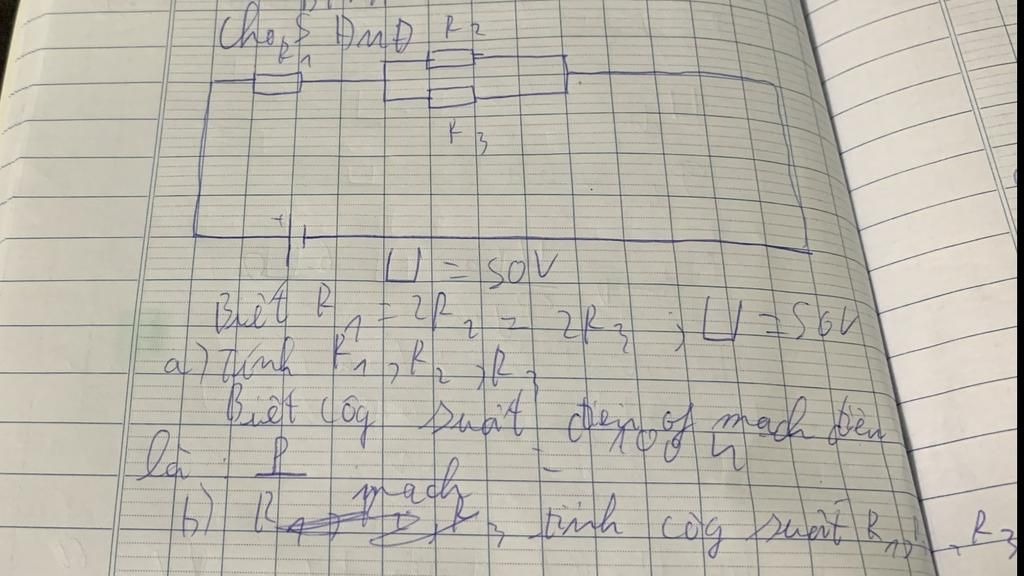 Cho Sơ Đồ
R1 R2
R3
+
U = 50V
Biết R1 = 2R2 = 2R3 ; U = 50V
a) Tính R1, R2, R3
Biết côg suất điện of mạch điện
là P mạch = 100
b) tính côg suất R1, R3